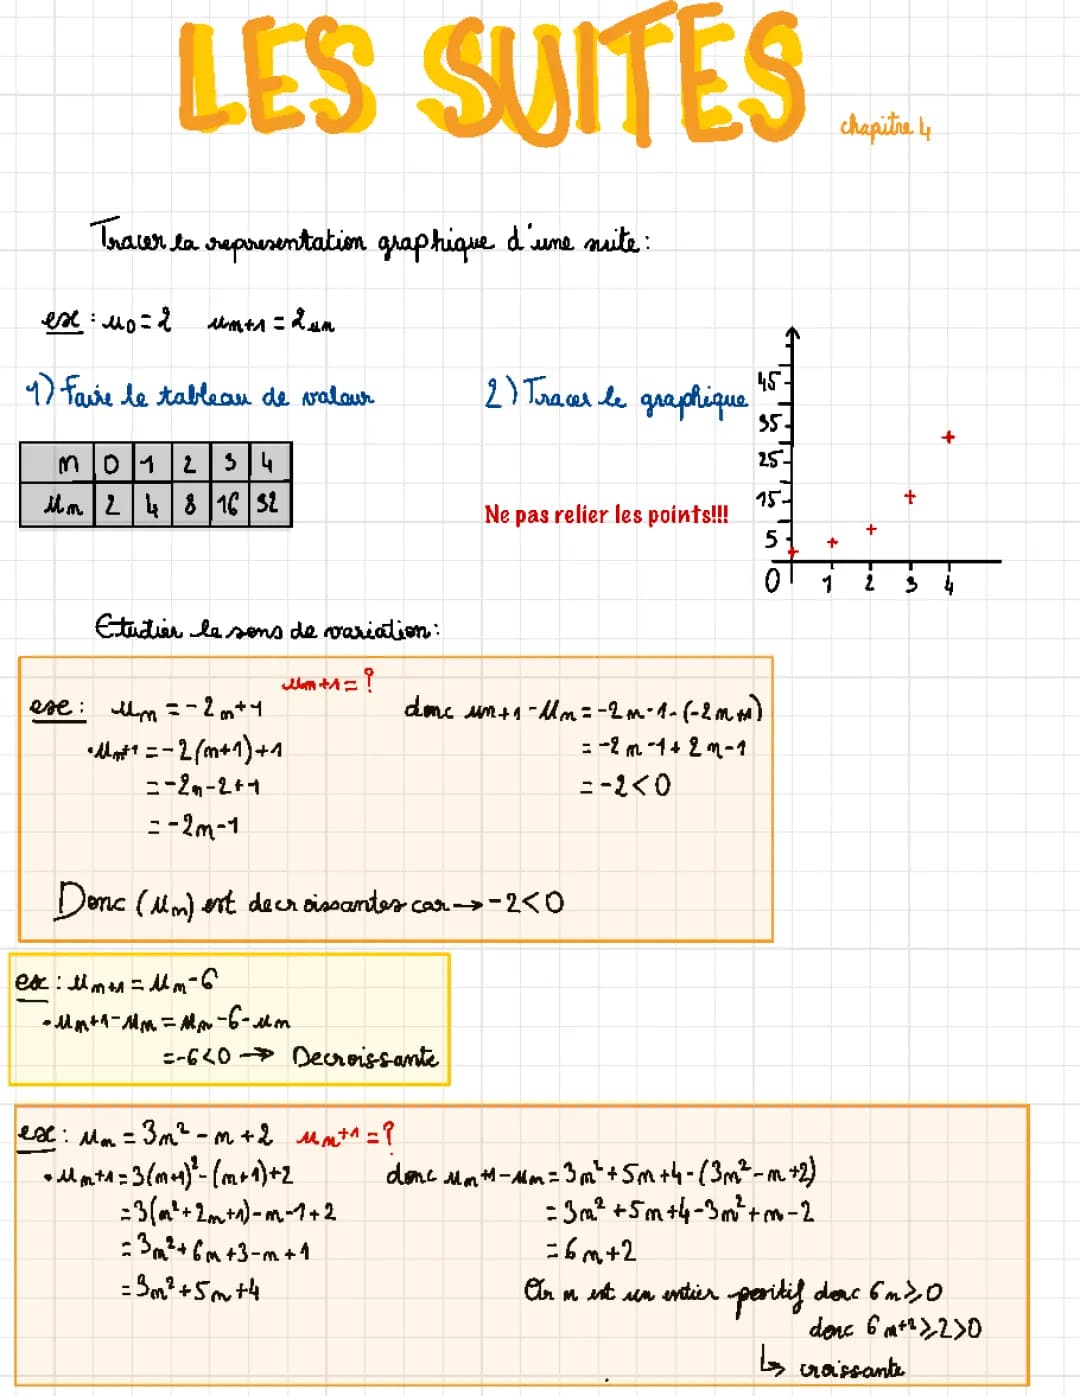 LES SUITES
chapitre 4
Tracer la representation graphique d'une suite :
ex : u0 = 2 un+1 = 2un
1) Faire le tableau de valeur
n 0 1 2 3 4
un 2 4 8 16 32
2) Tracer le graphique
Ne pas relier les points!!!
45
35
25
15
5
0 1 2 3 4
Etudier le sens de variation :
un+1 = ?
ex : un = -2n+1
• un+1 = -2(n+1)+1
= -2n-2+1
= -2n-1
donc un+1 - un = -2n-1-(-2n+1)
= -2n-1+2n-1
= -2<0
Donc (un) est decroissantes car → -2<0
ex : un+1 = un-6
• un+1-un = un-6-un
= -6<0 → Decroissante
ex : un = 3n²-n+2 un+1 = ?
• un+1 = 3(n+1)²-(n+1)+2
= 3(n²+2n+1)-n-1+2
= 3n²+6n+3-n+1
= 3n²+5n+4
donc un+1-un = 3n²+5n+4-(3n²-n+2)
= 3n²+5n+4-3n²+n-2
= 6n+2
Or n est un entier positif donc 6n⩾0
donc 6n+2⩾2>0
↳ croissante